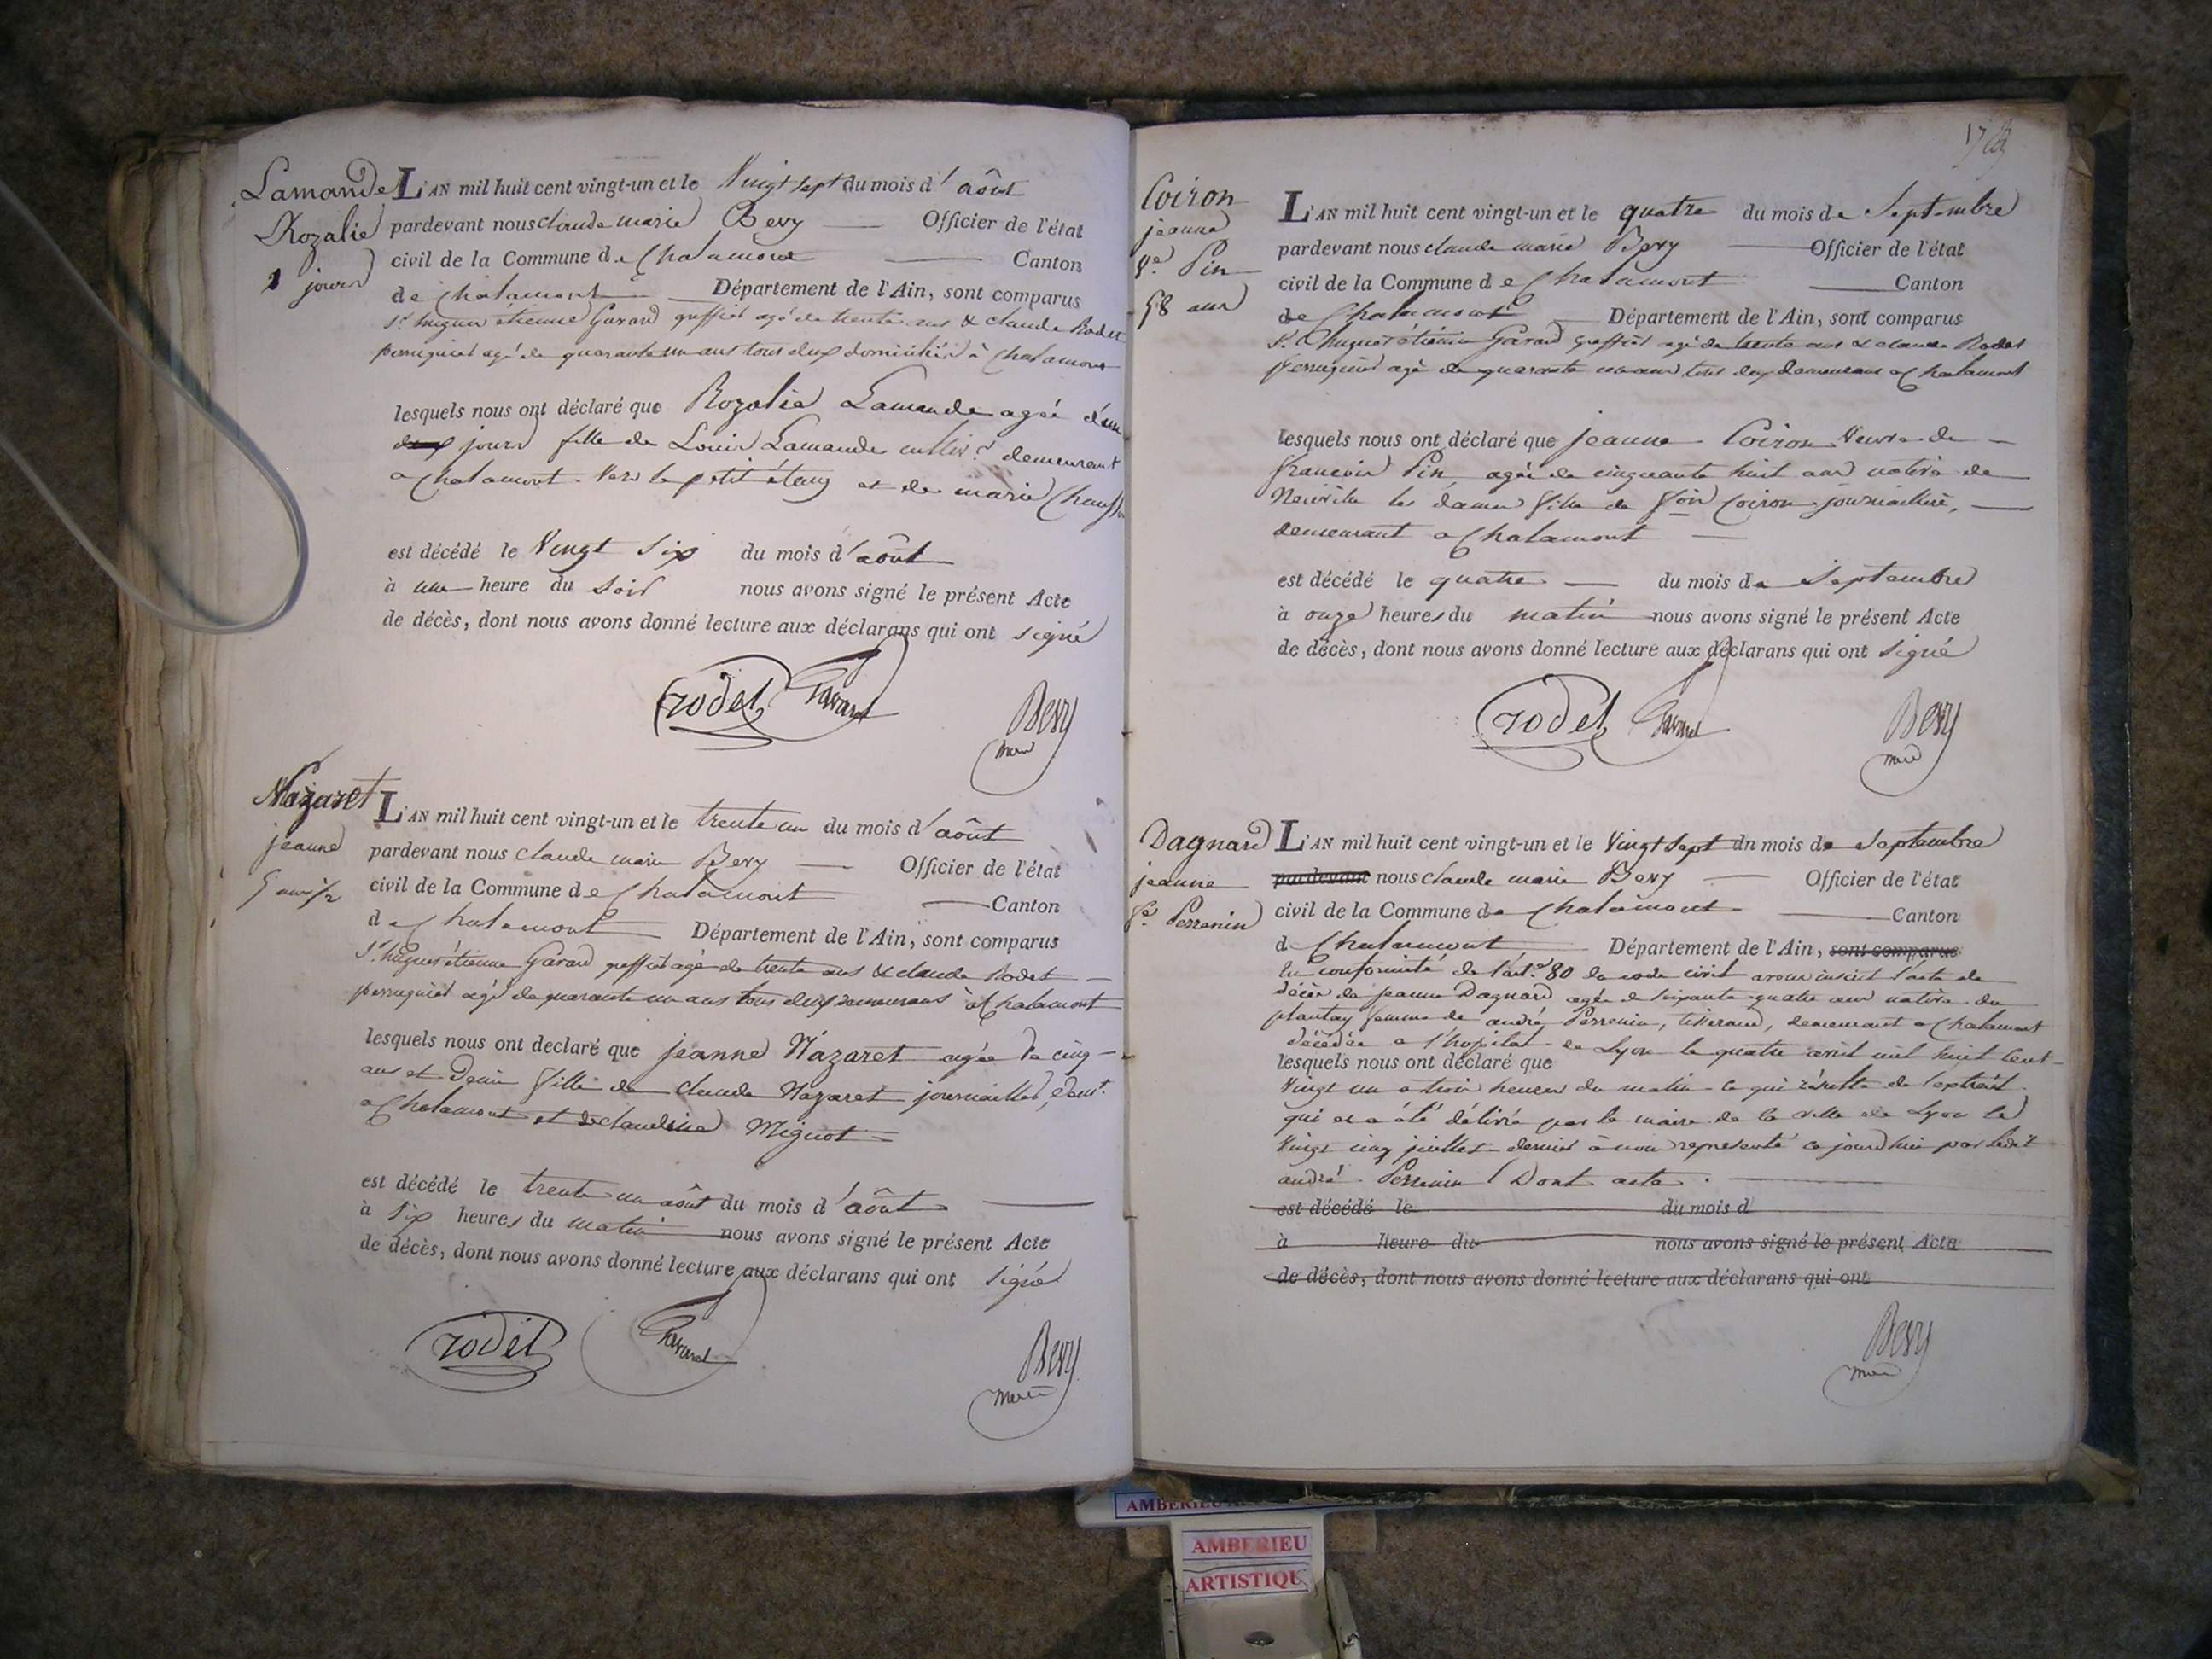 Lamande
Rozalie
1 jours
L'AN mil huit cent vingt-un et le Vingt sept du mois d'août
pardevant nous claude marie Bevy — Officier de l'état
civil de la Commune de Chalamont — Canton
de Chalamont — Département de l'Ain, sont comparus
Sr hugues étienne Gavard greffier agé de trente ans & claude Rodet
perruquier agé de quarante un ans tous deux domiciliés à Chalamont
lesquels nous ont déclaré que Rozalie Lamande agée d'un
jours fille de Louis Lamande cultivr demeurant
a Chalamont vers le petit étang et de marie
est décédé le Vingt Six du mois d'août
à une heure du Soir nous avons signé le présent Acte
de décès, dont nous avons donné lecture aux déclarans qui ont signé
rodet Gavard Bevy
maire
Nazaret
jeanne
5 ans 1/2
L'AN mil huit cent vingt-un et le trente un du mois d'août
pardevant nous claude marie Bevy — Officier de l'état
civil de la Commune de Chalamont — Canton
de Chalamont — Département de l'Ain, sont comparus
Sr hugues étienne Gavard greffier agé de trente ans & claude Rodet —
perruquier agé de quarante un ans tous deux demeurans à Chalamont
lesquels nous ont declaré que jeanne Nazaret agée de cinq —
ans et demi fille de claude Nazaret journaillier, demt
a Chalamont et de claudine Mignot —
est décédé le trente un août du mois d'août —
à Six heures du matin nous avons signé le présent Acte
de décès, dont nous avons donné lecture aux déclarans qui ont Signé
rodet Gavard Bevy
maire
Coiron
jeanne
Ve Pin
58 ans
L'AN mil huit cent vingt-un et le quatre du mois de Septembre
pardevant nous claude marie Bevy — Officier de l'état
civil de la Commune de Chalamont — Canton
de Chalamont — Département de l'Ain, sont comparus
Sr hugues étienne Gavard greffier agé de trente ans & claude Rodet
perruquier agé de quarante un ans tous deux demeurans a Chalamont
lesquels nous ont déclaré que jeanne Coiron Veuve de —
françois Pin, agée de cinquante huit ans native de
Neuville les dames fille de Coiron journaillière, —
demeurant a Chalamont —
est décédé le quatre — du mois de Septembre
à onze heures du matin nous avons signé le présent Acte
de décès, dont nous avons donné lecture aux déclarans qui ont Signé
rodet Gavard Bevy
maire
Dagnard
jeanne
Perrenin
L'AN mil huit cent vingt-un et le Vingt Sept du mois de Septembre
pardevant nous claude marie Bevy — Officier de l'état
civil de la Commune de Chalamont — Canton
d Chalamont — Département de l'Ain, sont comparus
En conformité de l'art. 80 du code civil avons inscrit l'acte de
décès de jeanne Dagnard agée de soixante quatre ans native du
plantay femme de andré Perrenin, tisserand, demeurant a Chalamont
décédée a l'hopital de Lyon le quatre avril mil huit cent —
lesquels nous ont déclaré que
Vingt un a trois heures du matin ce qui résulte de l'extrait
qui en a été délivré par le maire de la ville de Lyon le
Vingt cinq juillet dernier à nous représenté ce jourd'hui par ledit
andré Perrenin Dont acte.
est décédé le du mois d
à heure du nous avons signé le présent Acte
de décès, dont nous avons donné lecture aux déclarans qui ont
Bevy
maire
AMBERIEU
AMBERIEU
ARTISTIQU